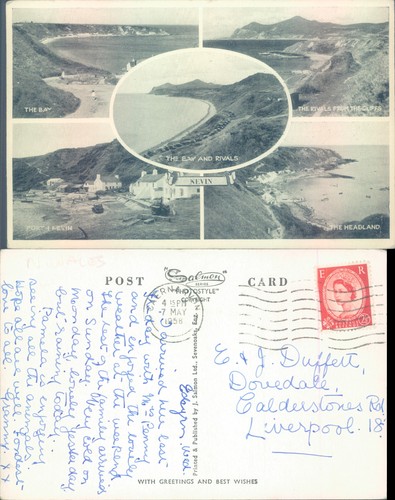 THE BAY
THE RIVELS FROM THE CLIFFS
THE BAY AND RIVALS
NEVIN
PORT NEVIN
THE HEADLAND
N. WALES
POST
Salmon
SERIES
"PHOTOSTYLE"
COPYRIGHT
CARD
4 15 PM
7 MAY
1956
E R
Printed & Published by J. Salmon Ltd., Sevenoaks, Eng.
WITH GREETINGS AND BEST WISHES
arrived here last
Thursday with Mrs Penny
and enjoyed the lovely
weather at the weekend
The rest of the family arrived
on Sunday. Very cold on
Monday, lovely yesterday
but raining today.
Pamela enjoying
seeing all the animals.
Hope all are well. Fondest
love to all. Granny xx
E & J. Duffett,
Dovedale,
Calderstones Rd
Liverpool. 18.